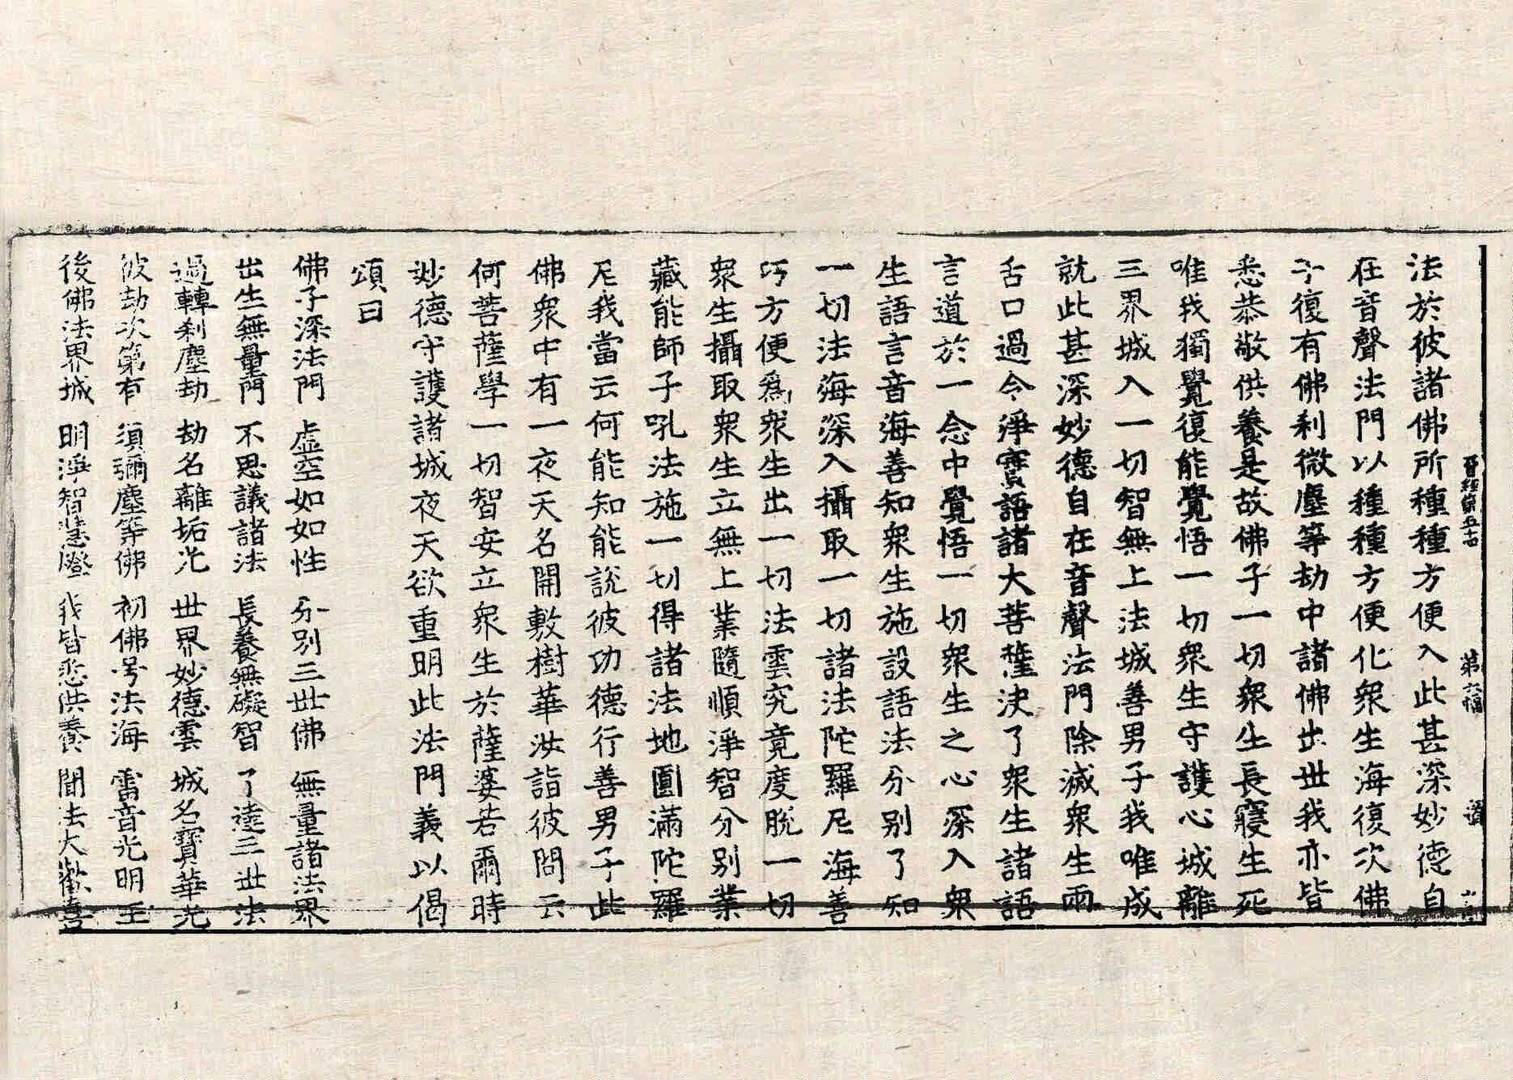 法於彼諸佛所種種方便入此甚深妙德自
在音聲法門以種種方便化衆生海復次佛
子復有佛刹微塵等劫中諸佛出世我亦皆
悉恭敬供養是故佛子一切衆生長寢生死
唯我獨覺復能覺悟一切衆生守護心城離
三界城入一切智無上法城善男子我唯成
就此甚深妙德自在音聲法門除滅衆生兩
舌口過令淨實語諸大菩薩決了衆生諸語
言道於一念中覺悟一切衆生之心深入衆
生語言音海善知衆生施設語法分別了知
一切法海深入攝取一切諸法陀羅尼海善
巧方便爲衆生出一切法雲究竟度脫一切
衆生攝取衆生立無上業隨順淨智分別業
藏能師子吼法施一切得諸法地圓滿陀羅
尼我當云何能知能說彼功德行善男子此
佛衆中有一夜天名開敷樹華汝詣彼問云
何菩薩學一切智安立衆生於薩婆若爾時
妙德守護諸城夜天欲重明此法門義以偈
頌曰
佛子深法門 虛空如如性 分別三世佛 無量諸法界
出生無量門 不思議諸法 長養無礙智 了達三世法
過轉刹塵劫 劫名離垢光 世界妙德雲 城名寶華光
彼劫次第有 須彌塵等佛 初佛号法海 雷音光明王
後佛法界城 明淨智慧燈 我皆悉供養 聞法大歡喜